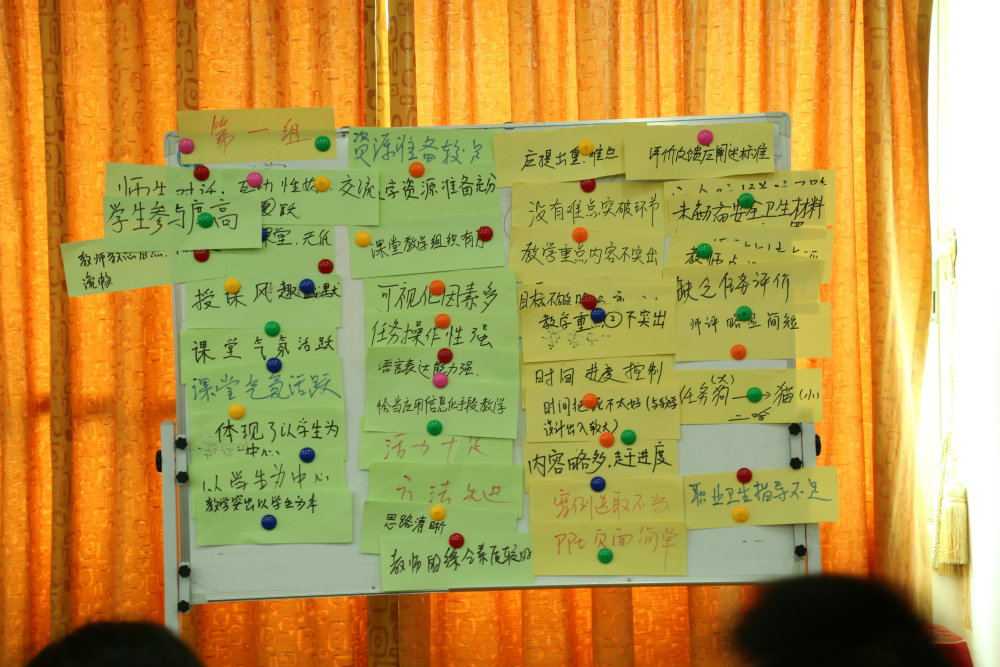 第一组
师生对话,互动性好
交流
学生参与度高
跃
课堂
流畅
授课风趣幽默
课堂气氛活跃
课堂气氛活跃
体现了以学生为
中心
以学生为中心
教学突出以学生为本
资源准备较足
学资源准备充分
课堂教学组织有
可视化因素多
任务操作性强
语言表达能力强.
恰当应用信息化手段教学
活力十足
方法先进
思路清晰
教师的综合素质较好
应提出重、难点
没有难点突破环节
教学重点内容不突出
目标不够
教学重点不突出
时间进度控制
时间把控不太好(与教学
设计出入较大)
内容略多,赶进度
案例选取不当
PPt页面简单
评价反馈应阐述标准
安全卫生材料
教师点
缺乏任务评价
师评略显简短
任务狗(大)→猫(小)
职业卫生指导不足